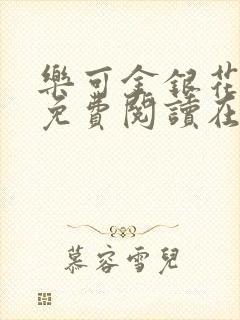 樂可金銀花
免費閱讀在
慕容雪兒